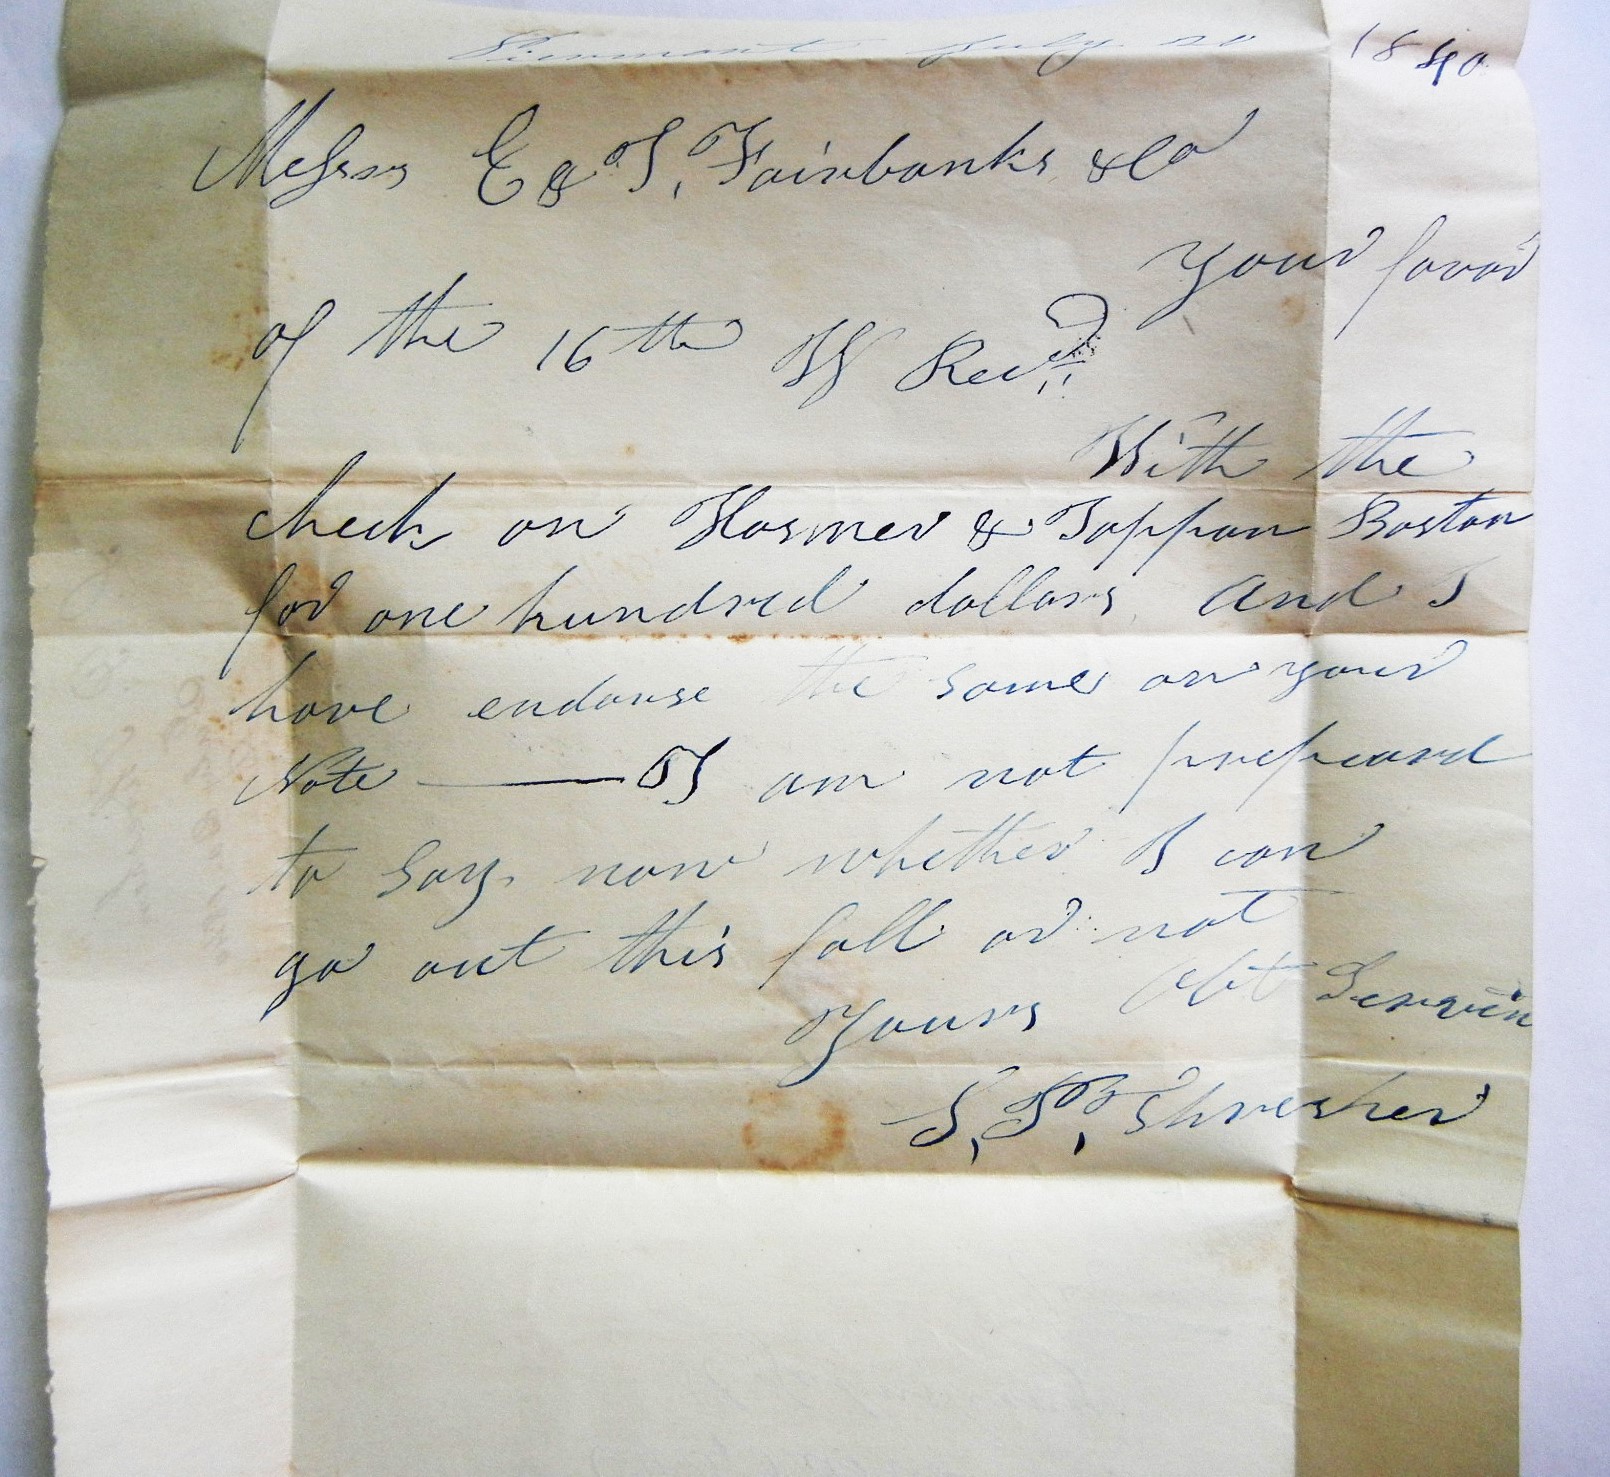 Piermont July 20 1840
Messrs E & T. Fairbanks & Co
your favor
of the 16th Is Recd
With the
check on Hosmer & Tappan Boston
for one hundred dollars and I
have endorse the same on your
Note — I am not prepeard
to say now whether I can
go out this fall or not
Yours Obt Servin
S. T. Thresher